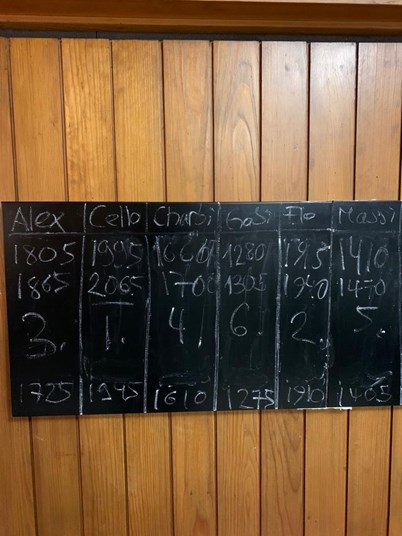 Alex Cello Charbi Gosi Flo Massi
1805 1995 1660 1280 1915 1410
1865 2065 1700 1305 1940 1470
3. 1. 4 6. 2. 5.
1725 1945 1610 1275 1910 1465